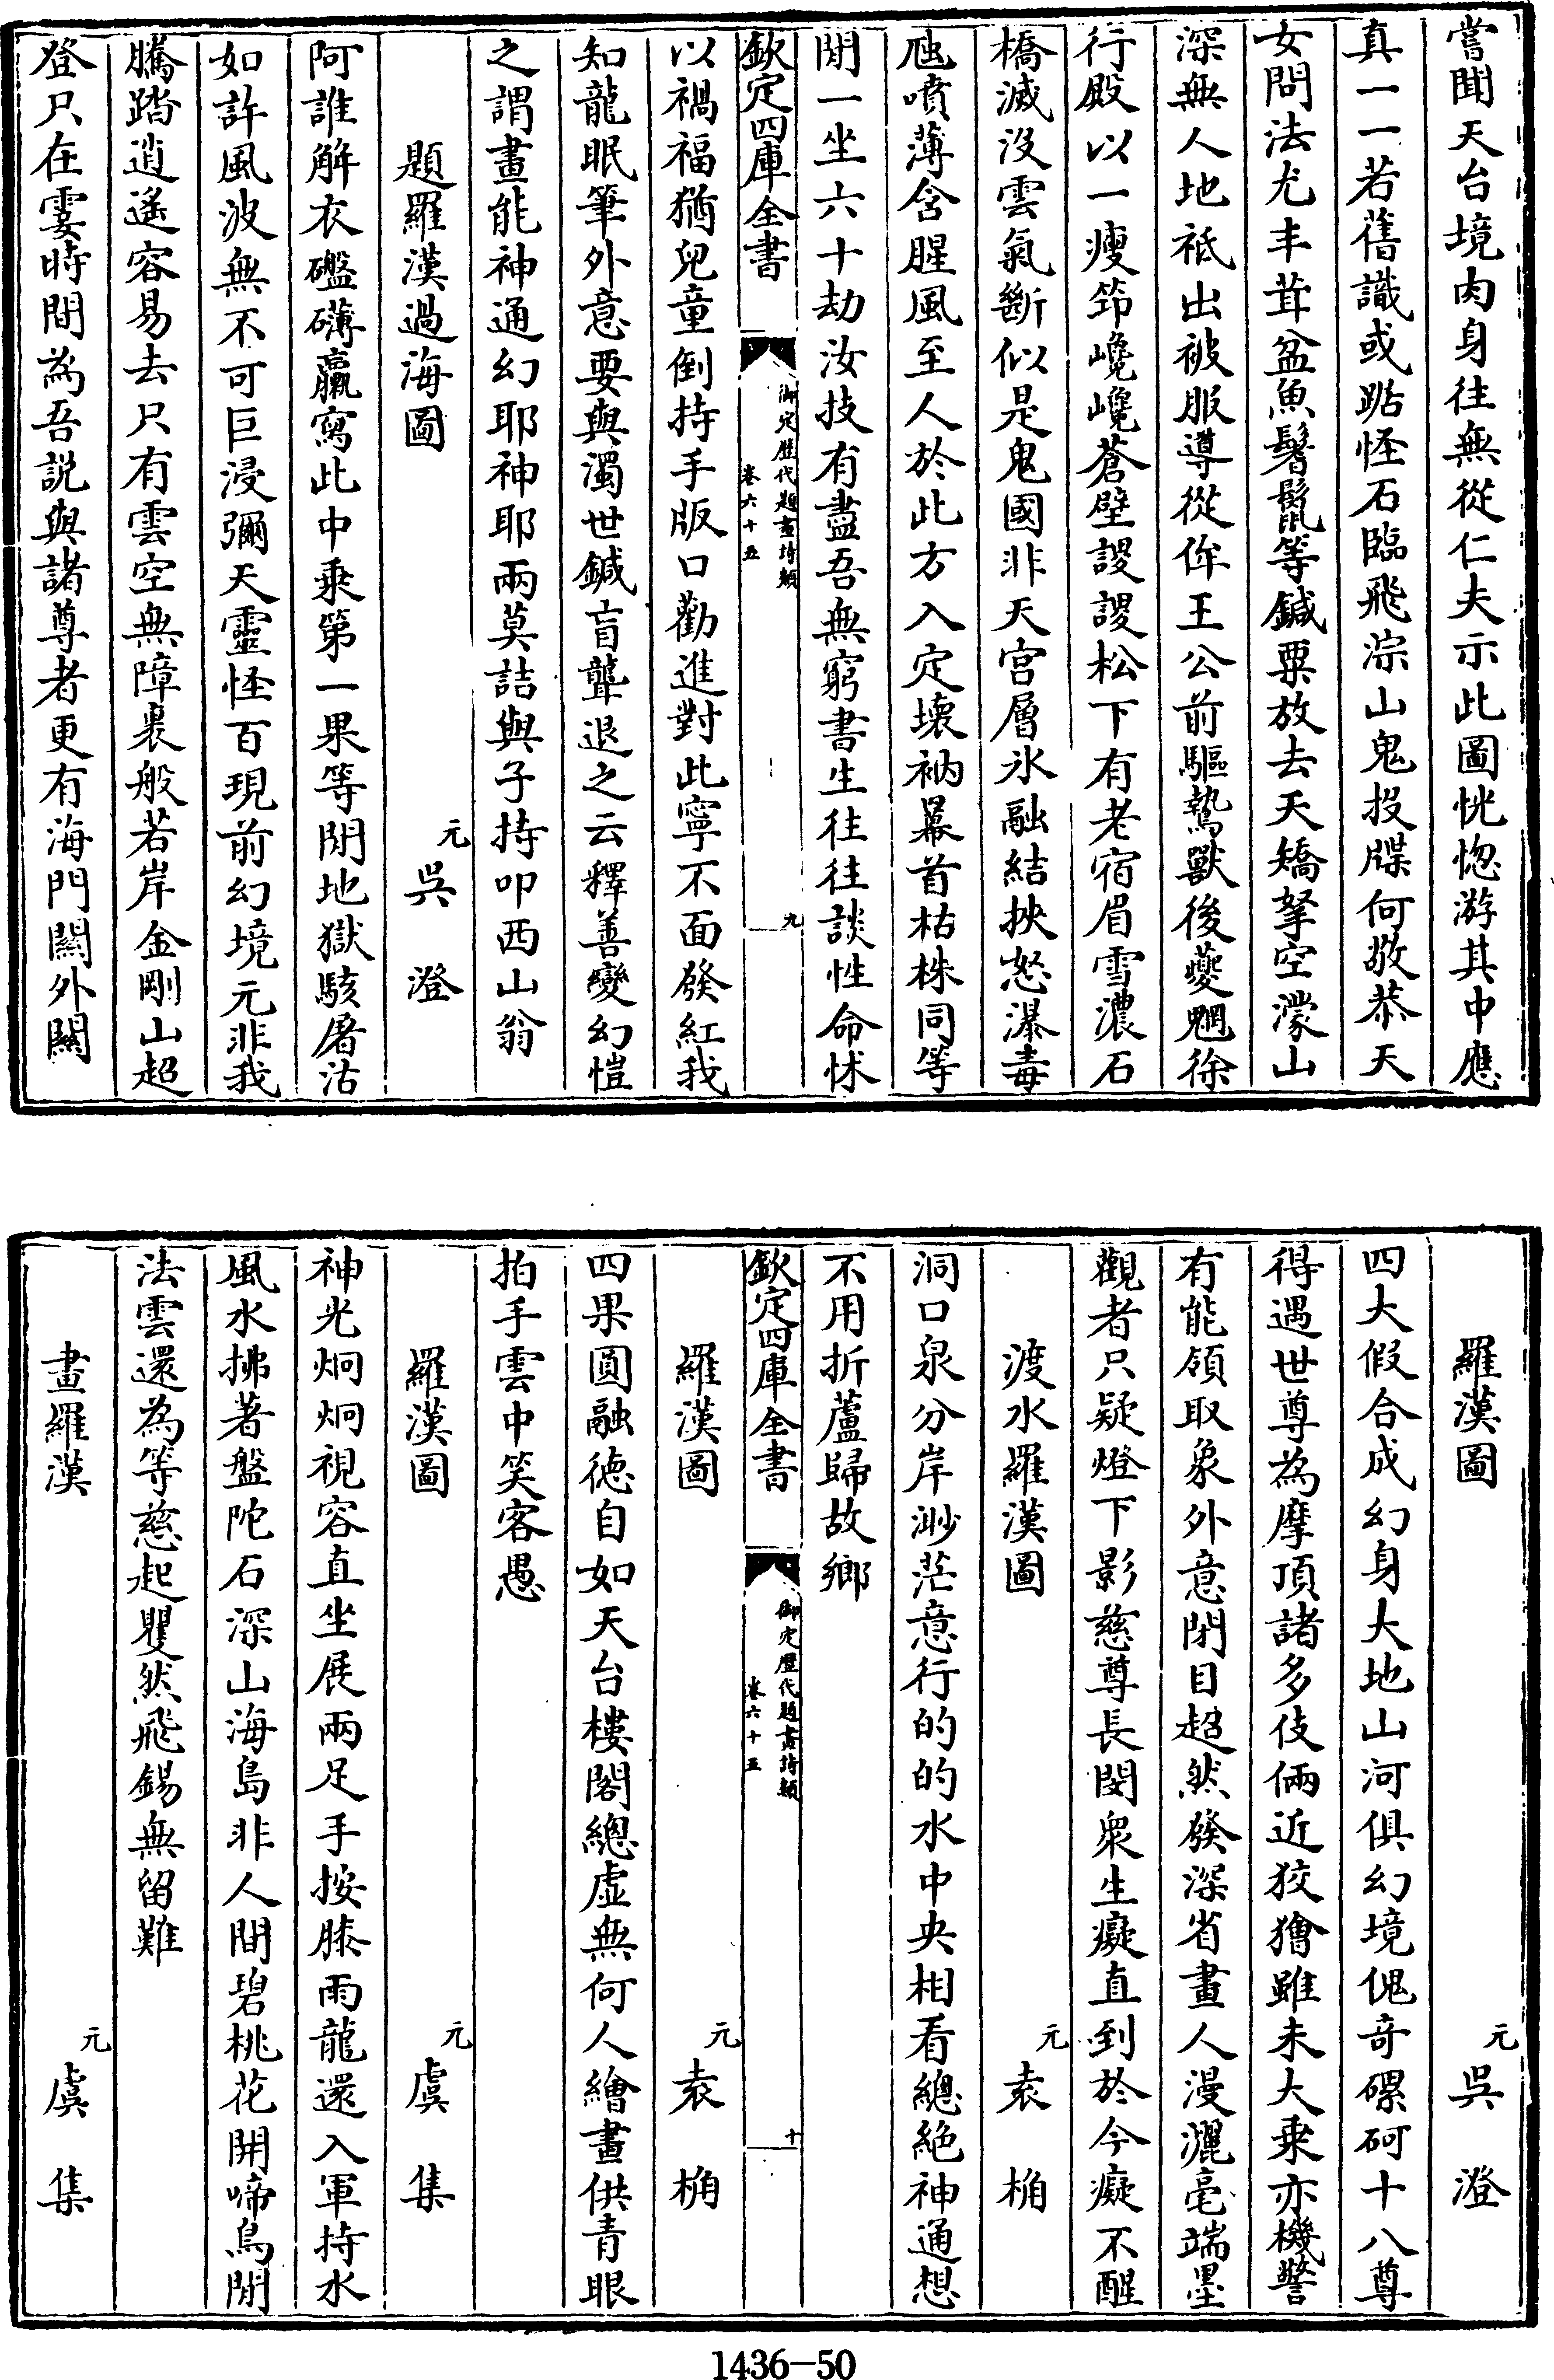 嘗聞天台境肉身往無從仁夫示此圖恍惚游其中應
真一一若舊識或跕怪石臨飛淙山鬼投牒何敬恭天
女問法尤丰茸盆魚鬐鬣等鍼粟放去夭矯拏空濛山
深無人地祗出被服導從侔王公前驅鷙獸後夔魍徐
行殿以一瘦筇巉巉蒼壁謖謖松下有老宿眉雪濃石
橋滅没雲氣斷似是鬼國非天宫層氷融結挾怒瀑毒
虺噴薄含腥風至人於此方入定壊衲羃首枯株同等
閒一坐六十劫汝技有盡吾無窮書生往往談性命怵
欽定四庫全書
御定歴代題畫詩類
卷六十五
九
以禍福猶兒童倒持手版口勸進對此寧不面發紅我
知龍眠筆外意要與濁世鍼盲聾退之云釋善變幻愷
之謂畫能神通幻耶神耶兩莫詰與子持叩西山翁
題羅漢過海圖
元吳澄
阿誰解衣磅礴臝寫此中乘第一果等閒地獄駭屠沽
如許風波無不可巨浸彌天靈怪百現前幻境元非我
騰踏逍遥容易去只有雲空無障裹般若岸金剛山超
登只在霎時間為吾説與諸尊者更有海門關外關
羅漢圖
元吳澄
四大假合成幻身大地山河俱幻境傀奇磥砢十八尊
得遇世尊為摩頂諸多伎倆近狡獪雖未大乘亦機警
有能領取象外意閉目超然發深省畫人漫灑毫端墨
觀者只疑燈下影慈尊長閔衆生癡直到於今癡不醒
渡水羅漢圖
元袁桷
洞口泉分岸渺茫意行的的水中央相看總絶神通想
不用折蘆歸故鄉
欽定四庫全書
御定歴代題畫詩類
卷六十五
十
羅漢圖
元袁桷
四果圓融徳自如天台樓閣總虚無何人繪畫供青眼
拍手雲中笑客愚
羅漢圖
元虞集
神光炯炯視容直坐展兩足手按膝雨龍還入軍持水
風水拂著盤陀石深山海島非人間碧桃花開啼鳥閒
法雲還為等慈起瞿然飛錫無留難
畫羅漢
元虞集
1436-50